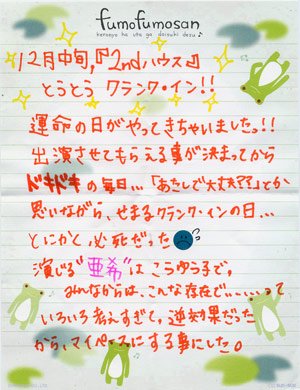 fumofumosan
keronyo ha uta ga daisuki desu♪
12月中旬,『2ndハウス』
とうとう クランク・イン!!
運命の日がやってきちゃいました。!!
出演させてもらえる事が決まってから
ドキドキの毎日…「あたしで大丈夫??」とか
思いながら、せまるクランク・インの日…
とにかく必死だった
演じる"亜希"はこうゆう子で、
みんなからは、こんな存在で……って
いろいろ考えすぎて、逆効果だった
から、マイペースにする事にした。